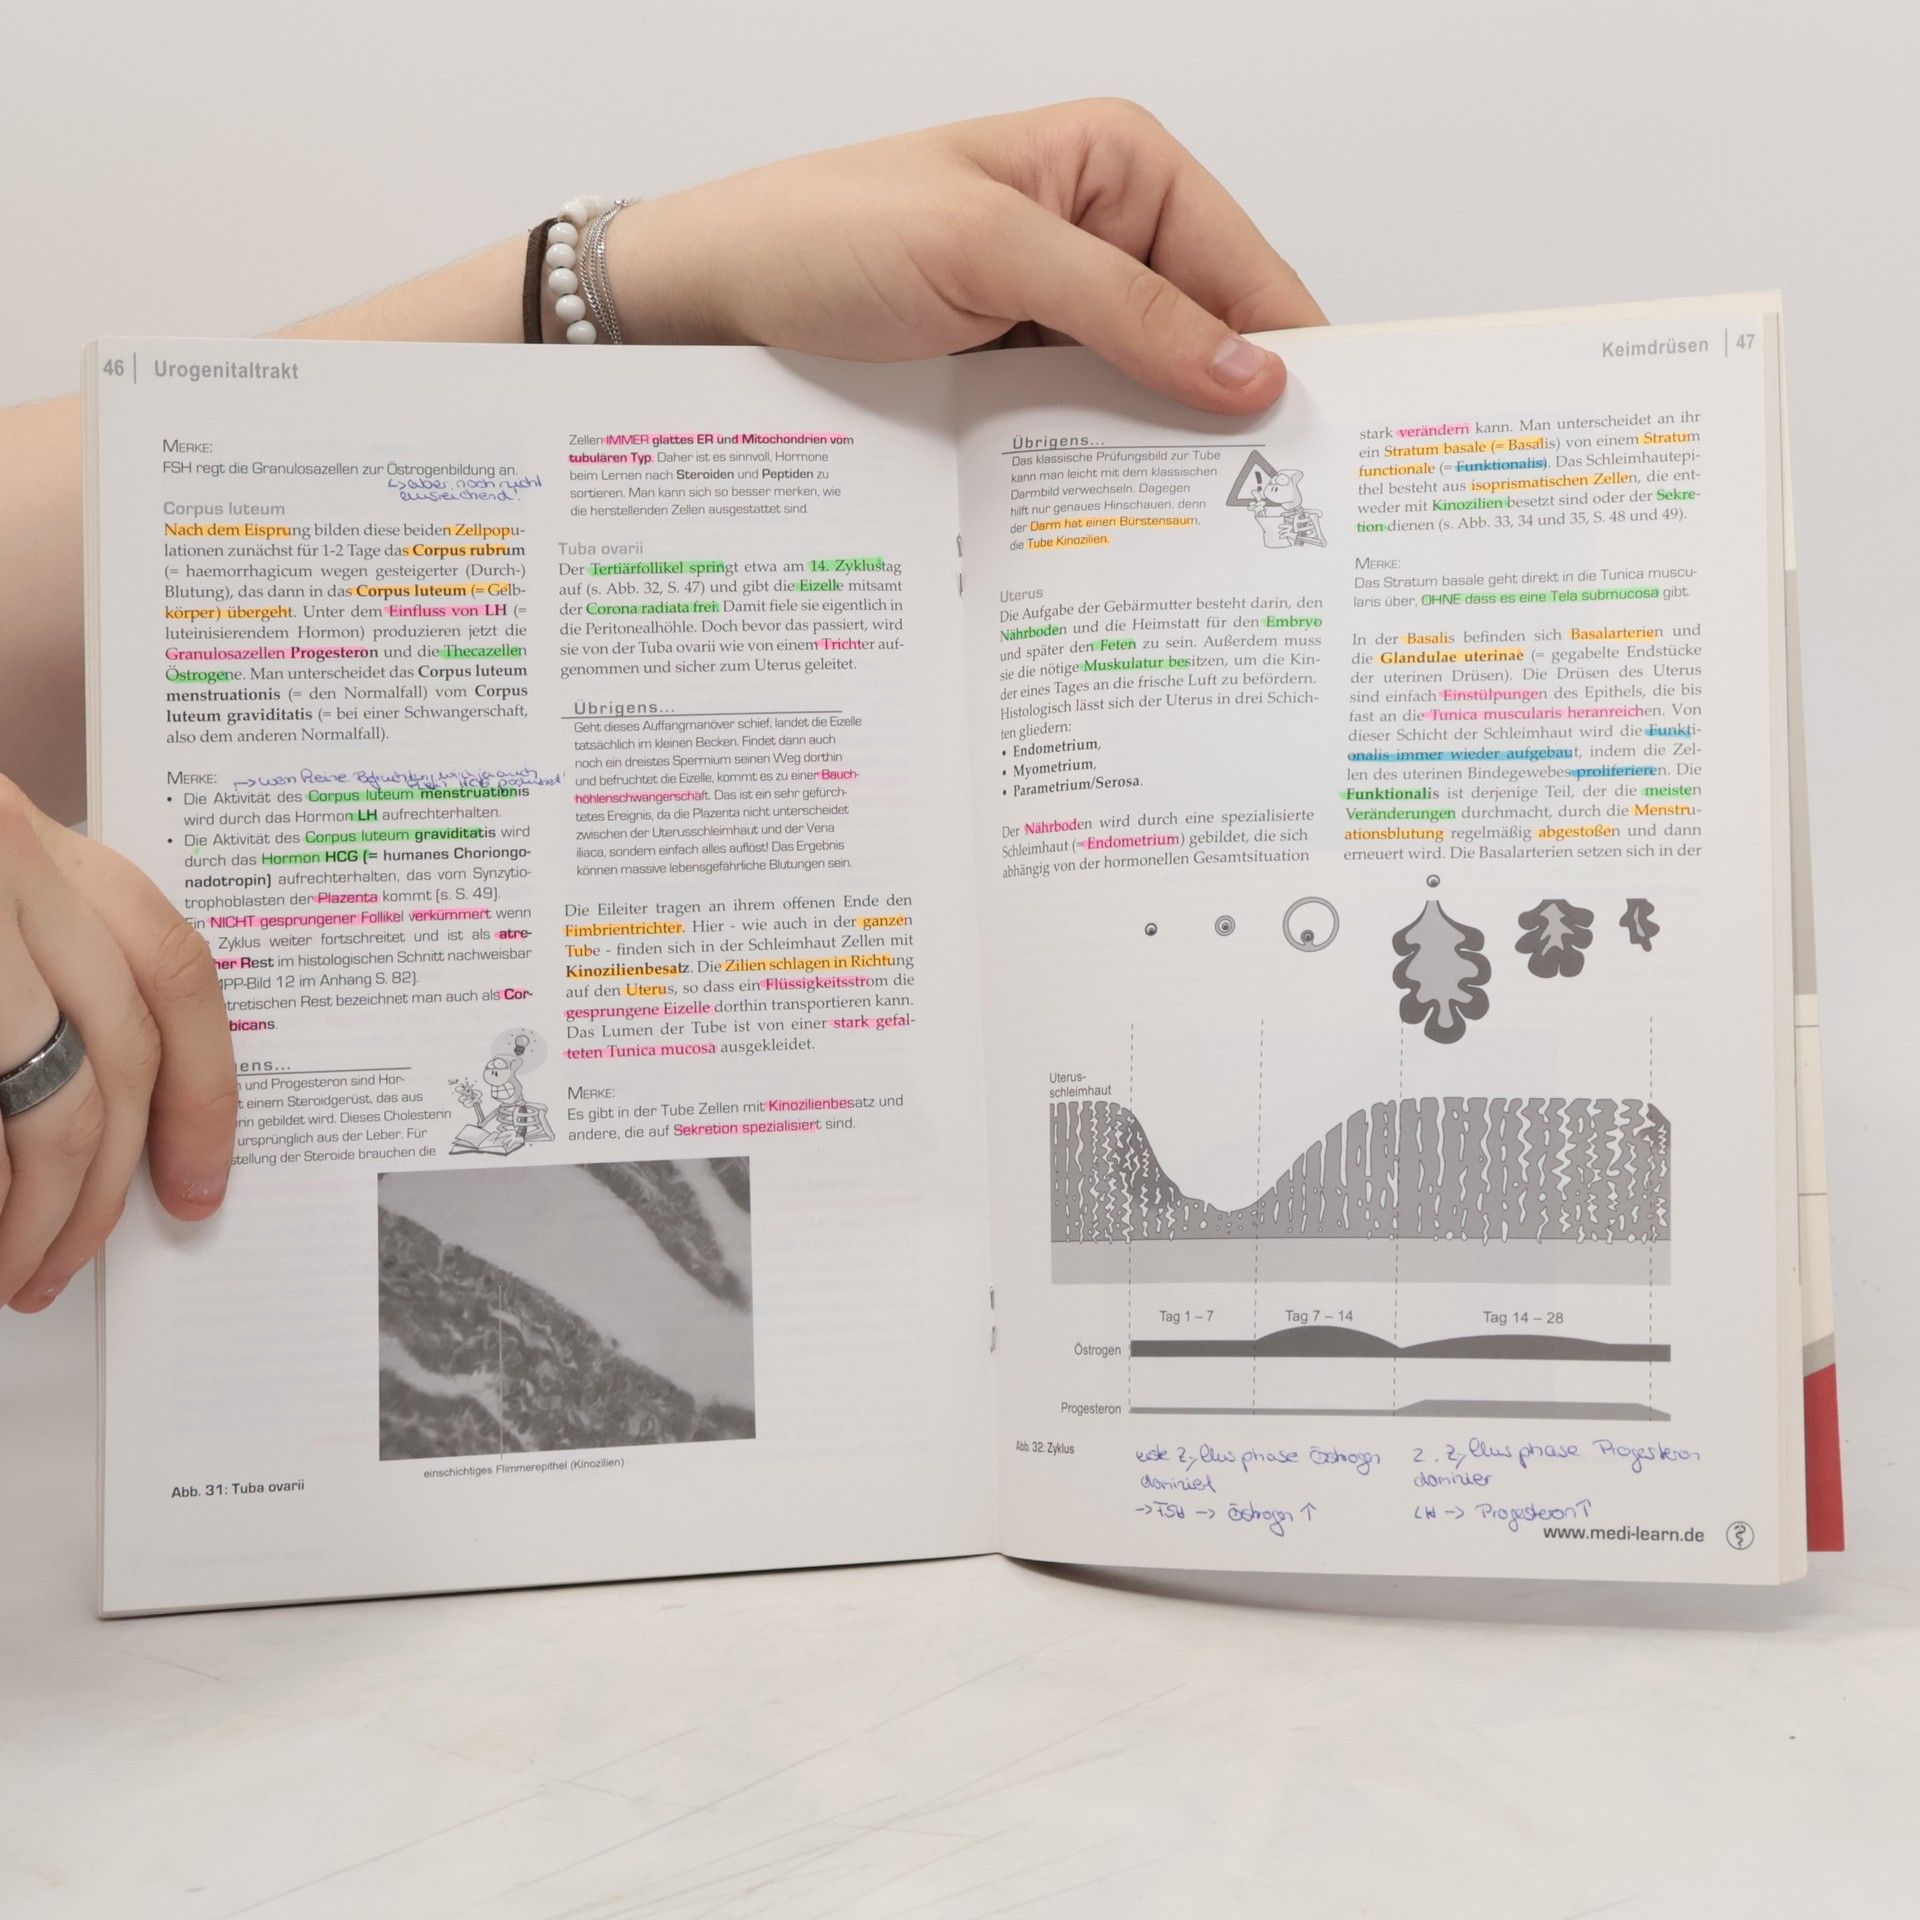 46 | Urogenitaltrakt
MERKE:
FSH regt die Granulosazellen zur Östrogenbildung an.
↳ aber noch nicht
ausreichend!
Corpus luteum
Nach dem Eisprung bilden diese beiden Zellpopu-
lationen zunächst für 1-2 Tage das Corpus rubrum
(= haemorrhagicum wegen gesteigerter (Durch-)
Blutung), das dann in das Corpus luteum (= Gelb-
körper) übergeht. Unter dem Einfluss von LH (=
luteinisierendem Hormon) produzieren jetzt die
Granulosazellen Progesteron und die Thecazellen
Östrogene. Man unterscheidet das Corpus luteum
menstruationis (= den Normalfall) vom Corpus
luteum graviditatis (= bei einer Schwangerschaft,
also dem anderen Normalfall).
MERKE:
• Die Aktivität des Corpus luteum menstruationis
wird durch das Hormon LH aufrechterhalten.
• Die Aktivität des Corpus luteum graviditatis wird
durch das Hormon HCG (= humanes Choriongo-
nadotropin) aufrechterhalten, das vom Synzytio-
trophoblasten der Plazenta kommt (s. S. 49).
Ein NICHT gesprungener Follikel verkümmert wenn
Zyklus weiter fortschreitet und ist als atre-
her Rest im histologischen Schnitt nachweisbar
IPP-Bild 12 im Anhang S. 82).
tretischen Rest bezeichnet man auch als Cor-
bicans.
ens...
und Progesteron sind Hor-
t einem Steroidgerüst, das aus
rin gebildet wird. Dieses Cholesterin
ursprünglich aus der Leber. Für
stellung der Steroide brauchen die
Zellen IMMER glattes ER und Mitochondrien vom
tubulären Typ. Daher ist es sinnvoll, Hormone
beim Lernen nach Steroiden und Peptiden zu
sortieren. Man kann sich so besser merken, wie
die herstellenden Zellen ausgestattet sind.
Tuba ovarii
Der Tertiärfollikel springt etwa am 14. Zyklustag
auf (s. Abb. 32, S. 47) und gibt die Eizelle mitsamt
der Corona radiata frei. Damit fiele sie eigentlich in
die Peritonealhöhle. Doch bevor das passiert, wird
sie von der Tuba ovarii wie von einem Trichter auf-
genommen und sicher zum Uterus geleitet.
Übrigens...
Geht dieses Auffangmanöver schief, landet die Eizelle
tatsächlich im kleinen Becken. Findet dann auch
noch ein dreistes Spermium seinen Weg dorthin
und befruchtet die Eizelle, kommt es zu einer Bauch-
höhlenschwangerschaft. Das ist ein sehr gefürch-
tetes Ereignis, da die Plazenta nicht unterscheidet
zwischen der Uterusschleimhaut und der Vena
iliaca, sondern einfach alles auflöst! Das Ergebnis
können massive lebensgefährliche Blutungen sein.
Die Eileiter tragen an ihrem offenen Ende den
Fimbrientrichter. Hier - wie auch in der ganzen
Tube - finden sich in der Schleimhaut Zellen mit
Kinozilienbesatz. Die Zilien schlagen in Richtung
auf den Uterus, so dass ein Flüssigkeitsstrom die
gesprungene Eizelle dorthin transportieren kann.
Das Lumen der Tube ist von einer stark gefal-
teten Tunica mucosa ausgekleidet.
MERKE:
Es gibt in der Tube Zellen mit Kinozilienbesatz und
andere, die auf Sekretion spezialisiert sind.
einschichtiges Flimmerepithel (Kinozilien)
Abb. 31: Tuba ovarii
Keimdrüsen | 47
Übrigens...
Das klassische Prüfungsbild zur Tube
kann man leicht mit dem klassischen
Darmbild verwechseln. Dagegen
hilft nur genaues Hinschauen, denn
der Darm hat einen Bürstensaum,
die Tube Kinozilien.
Uterus
Die Aufgabe der Gebärmutter besteht darin, den
Nährboden und die Heimstatt für den Embryo
und später den Feten zu sein. Außerdem muss
sie die nötige Muskulatur besitzen, um die Kin-
der eines Tages an die frische Luft zu befördern.
Histologisch lässt sich der Uterus in drei Schich-
ten gliedern:
• Endometrium,
• Myometrium,
• Parametrium/Serosa.
Der Nährboden wird durch eine spezialisierte
Schleimhaut (= Endometrium) gebildet, die sich
abhängig von der hormonellen Gesamtsituation
stark verändern kann. Man unterscheidet an ihr
ein Stratum basale (= Basalis) von einem Stratum
functionale (= Funktionalis). Das Schleimhautepi-
thel besteht aus isoprismatischen Zellen, die ent-
weder mit Kinozilien besetzt sind oder der Sekre-
tion dienen (s. Abb. 33, 34 und 35, S. 48 und 49).
MERKE:
Das Stratum basale geht direkt in die Tunica muscu-
laris über, OHNE dass es eine Tela submucosa gibt.
In der Basalis befinden sich Basalarterien und
die Glandulae uterinae (= gegabelte Endstücke
der uterinen Drüsen). Die Drüsen des Uterus
sind einfach Einstülpungen des Epithels, die bis
fast an die Tunica muscularis heranreichen. Von
dieser Schicht der Schleimhaut wird die Funkti-
onalis immer wieder aufgebaut, indem die Zel-
len des uterinen Bindegewebes proliferieren. Die
Funktionalis ist derjenige Teil, der die meisten
Veränderungen durchmacht, durch die Menstru-
ationsblutung regelmäßig abgestoßen und dann
erneuert wird. Die Basalarterien setzen sich in der
Uterus-
schleimhaut
Tag 1 – 7
Tag 7 – 14
Tag 14 – 28
Östrogen
Progesteron
Abb. 32: Zyklus
erste Zyklusphase Östrogen
dominiert
→ FSH → Östrogen ↑
2. Zyklusphase Progesteron
dominier
LH → Progesteron ↑
www.medi-learn.de